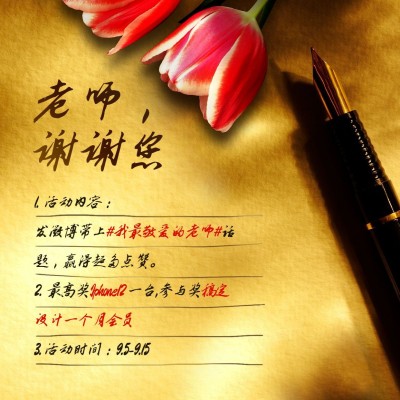 老师，
谢谢您
1.活动内容：
发微博带上#我最敬爱的老师#话
题，赢得超多点赞。
2.最高奖Iphone12一台,参与奖搞定
设计一个月会员
3.活动时间：9.5-9.15